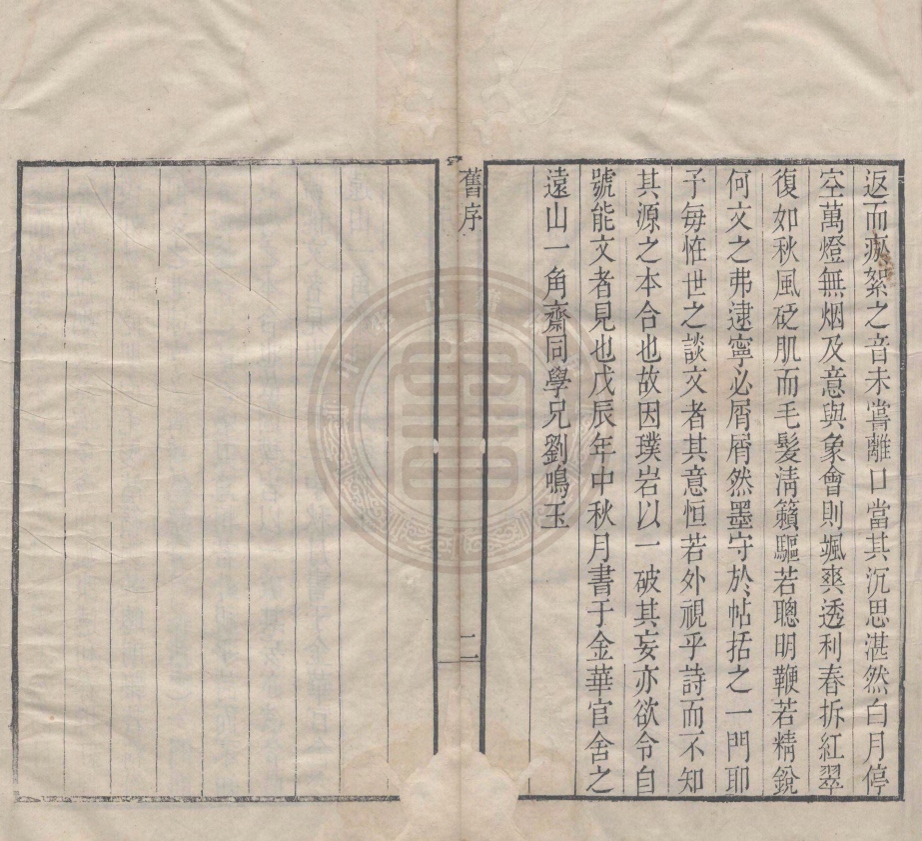 返而瘀絮之音未嘗離口當其沉思湛然白月停
空萬燈無烟及意與象會則颯爽透利春拆紅翠
復如秋風砭肌而毛髮清籟驅若聰明鞭若精銳
何文之弗逮寧必屑屑然墨守於帖括之一門耶
子每惟世之談文者其意恒若外視乎詩而不知
其源之本合也故因璞岩以一破其妄亦欲令自
號能文者見也戊辰年中秋月書于金華官舍之
遠山一角齋同學兄劉鳴玉
舊序
二